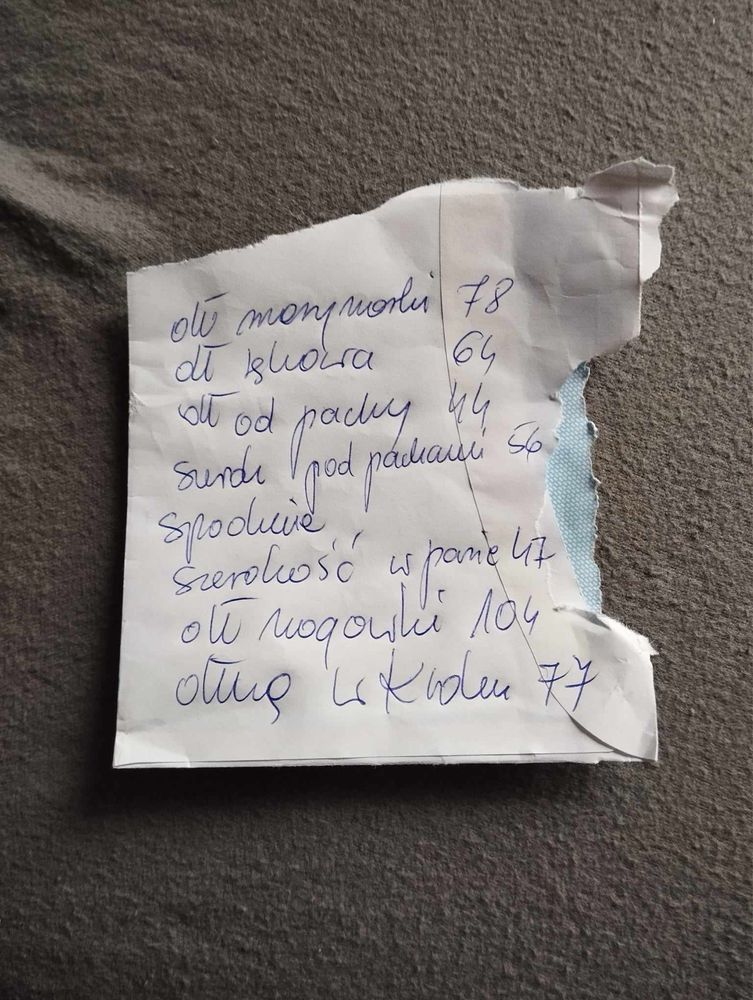 dł marynarki 78
dł rękawa 64
dł od pachy 44
szerok pod pachami 56
Spodnie
szerokość w pasie 47
dł nogawki 104
dług w kroku 77